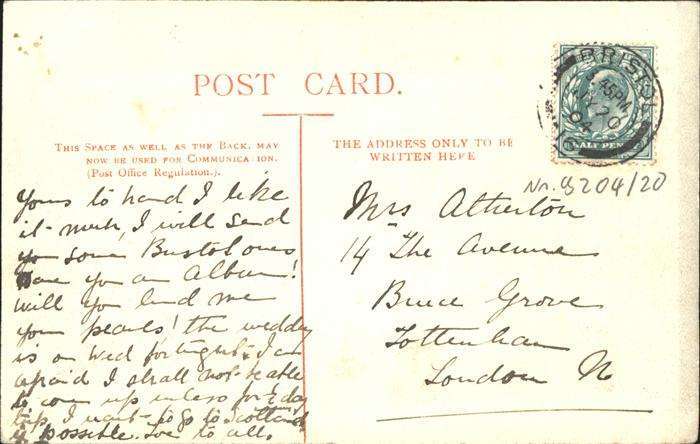 POST CARD.
THIS SPACE AS WELL AS THE BACK, MAY
NOW BE USED FOR COMMUNICATION.
(Post Office Regulation.).
THE ADDRESS ONLY TO BE
WRITTEN HERE
BRISTOL
45PM
MY 20
04
HALF PENNY
Yours to hand I like
it much, I will send
you some Bristol ones
Have you an Album!
will you lend me
your pearls! the wedding
is on Wed fortnight I am
afraid I shall not be able
to come up unless for ½ day
trip, I want to go to Scotland
if possible. Love to all.
Mrs Atherton
14 The Avenue
Bruce Grove
Tottenham
London N
204/20